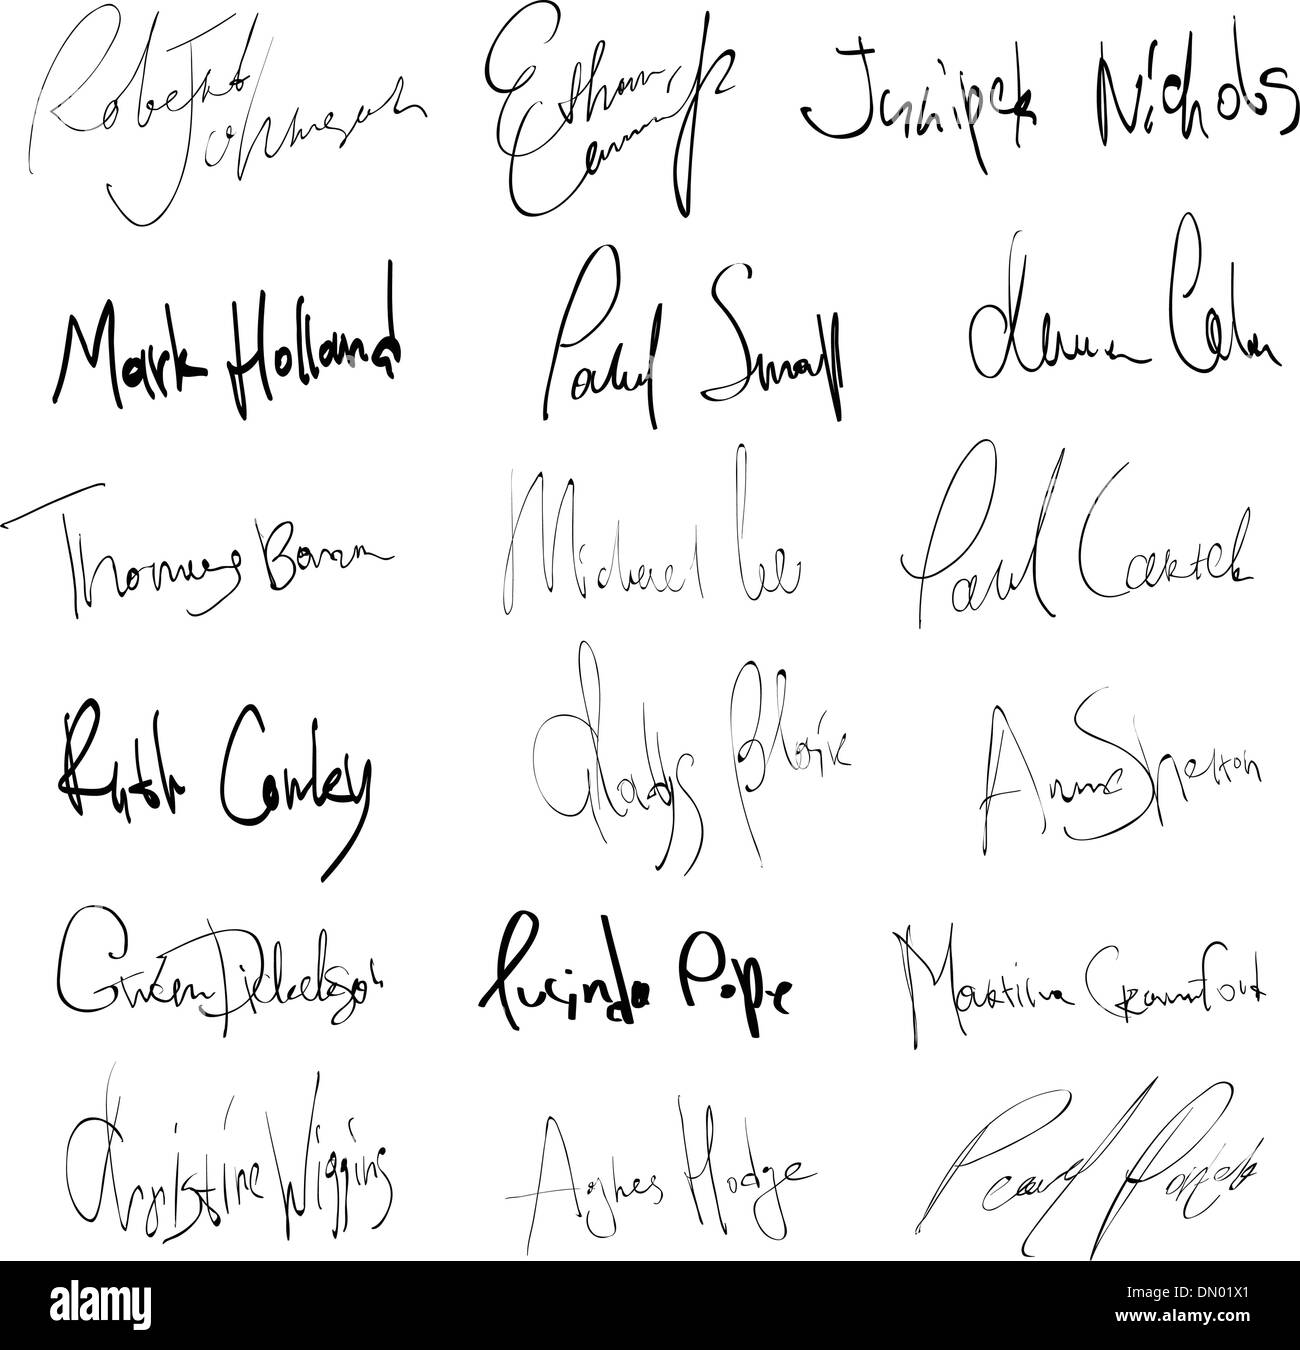 Robert Johnson
Ethan
Juniper Nichols
Mark Holland
Paul Small
Thomas Baran
Michael Lee
Paul Carrick
Ruth Conley
Gladys Blair
Anne Shelton
Gwen Dickelson
Lucinda Pope
Martina Crawford
Christine Wiggins
Agnes Hodge
Pearl
alamy
alamy stock photo
DN01X1
www.alamy.com